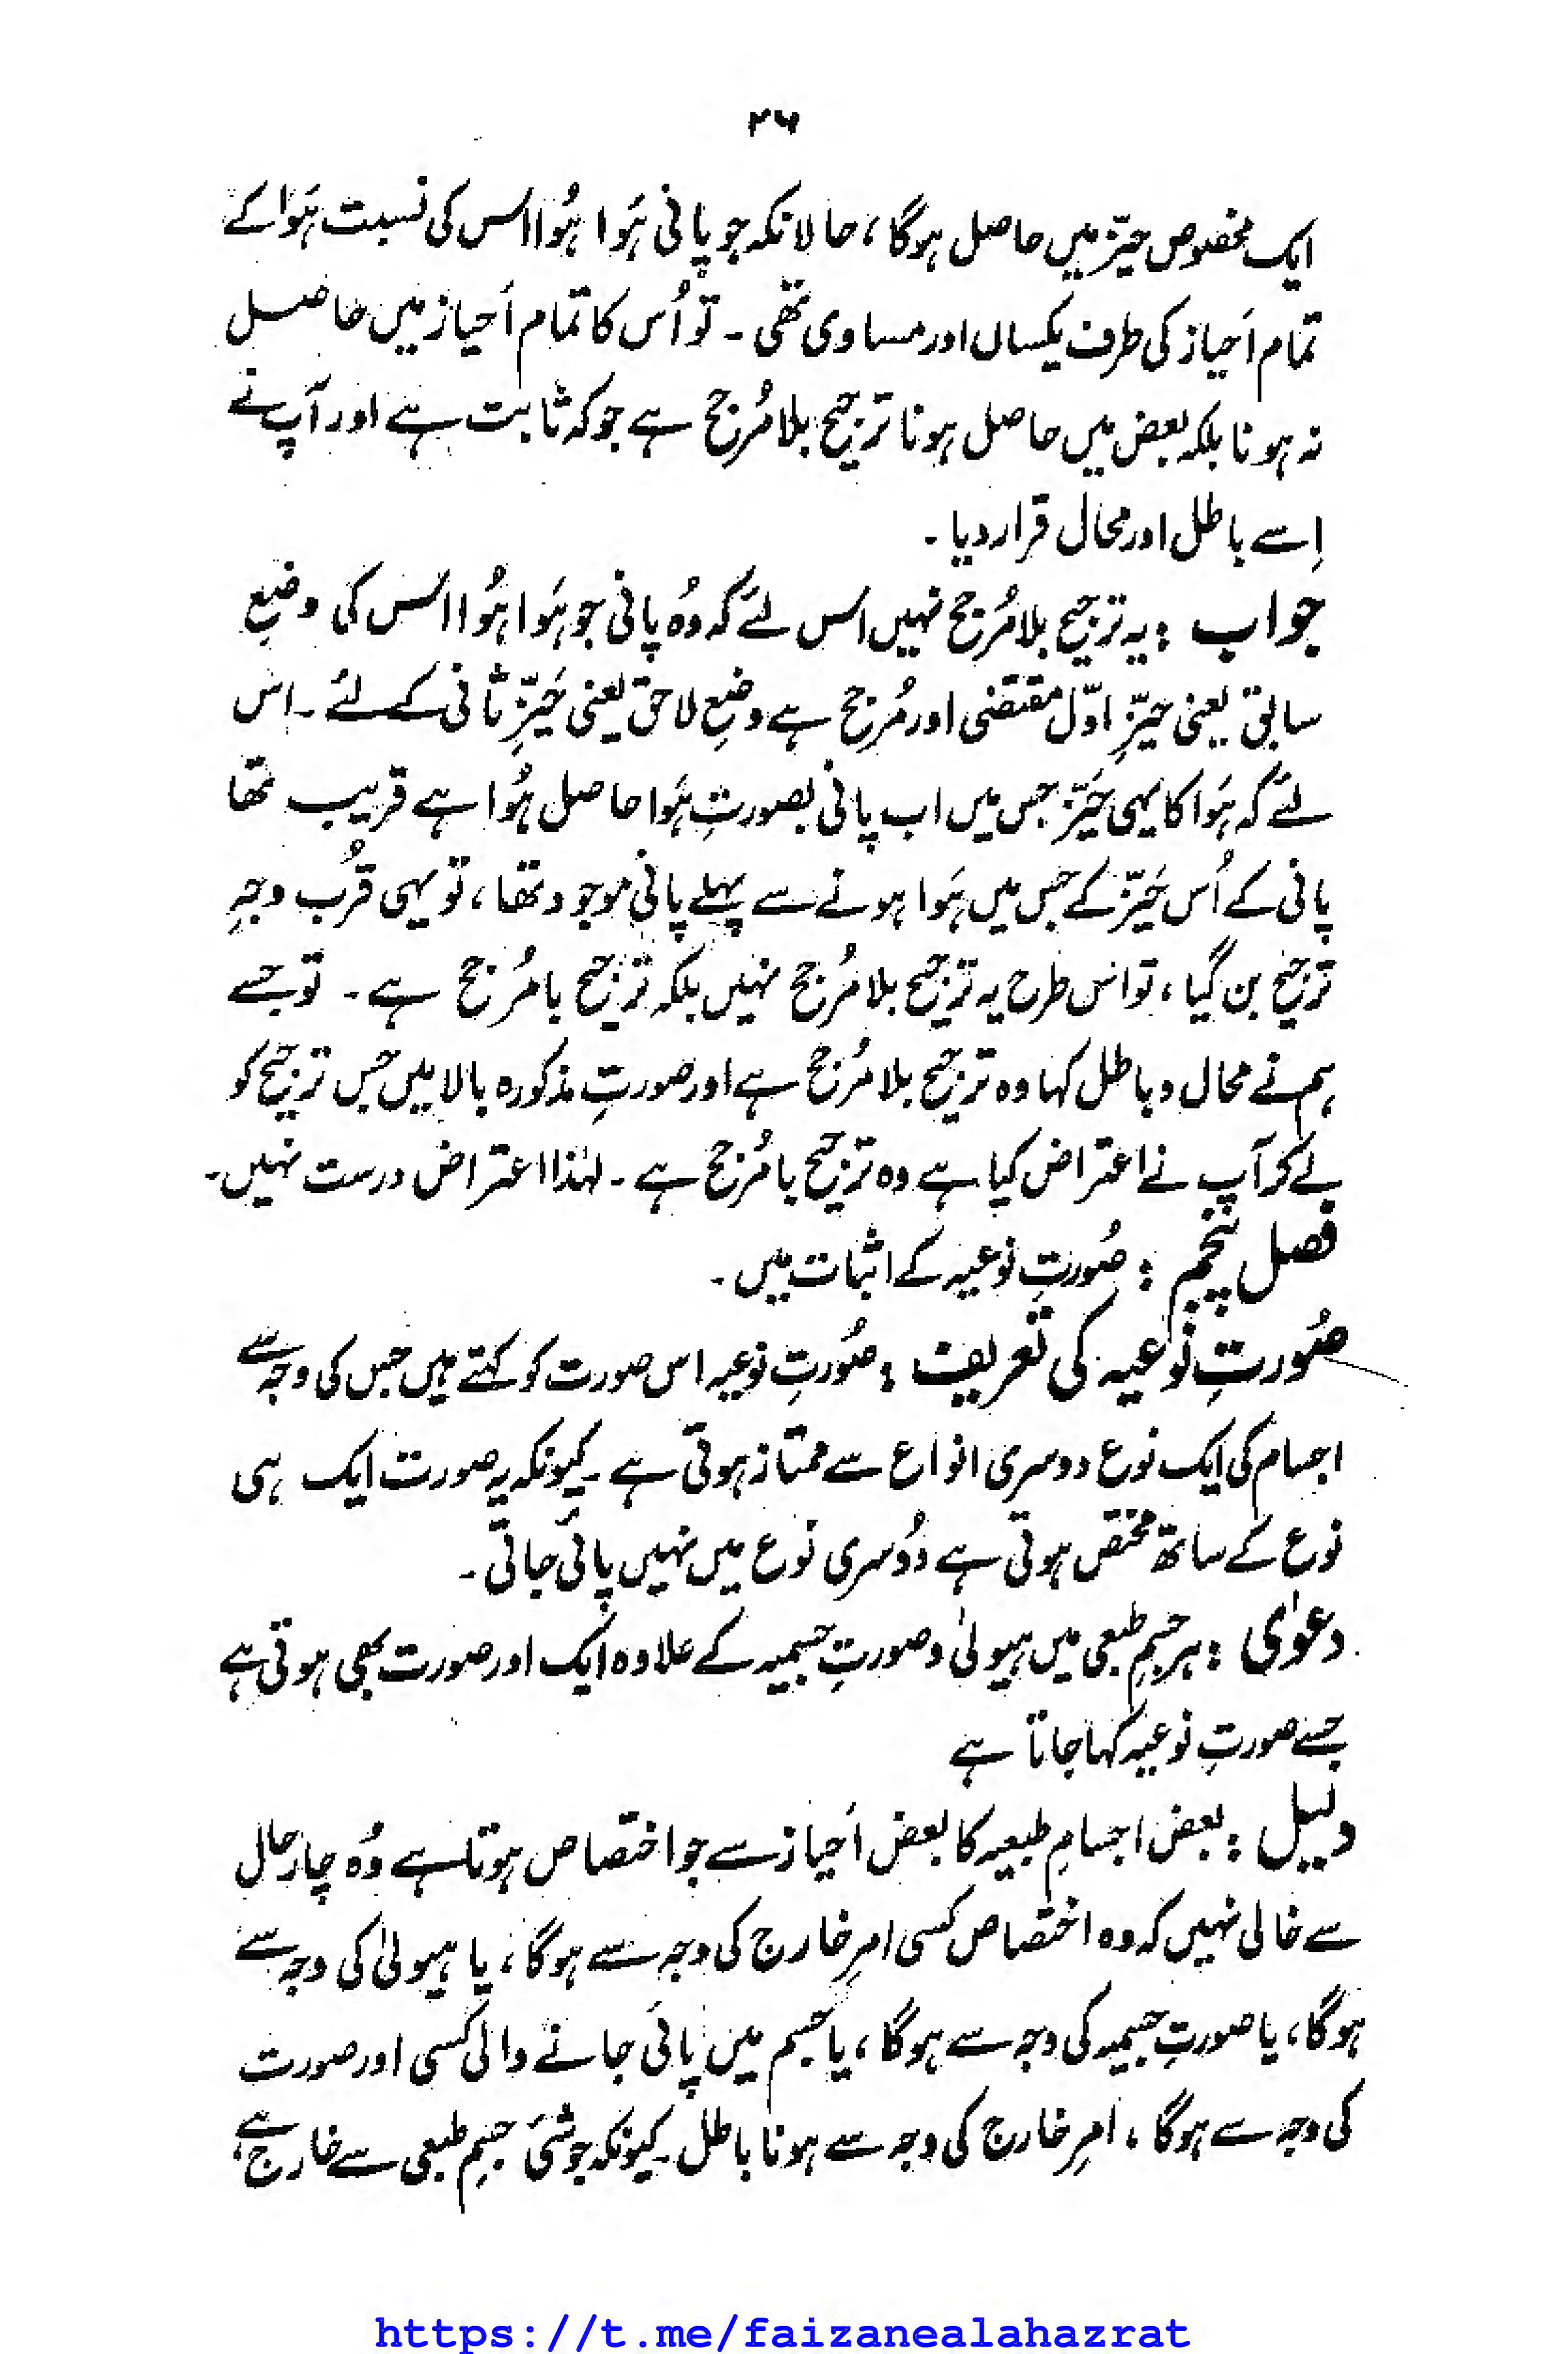 ۲۶
ایک مخصوص حیّز میں حاصل ہوگا، حالانکہ جو پانی ہَوا ہُوا اس کی نسبت ہَوا کے
تمام اَحیاز کی طرف یکساں اور مساوی تھی ۔ تو اُس کا تمام اَحیاز میں حاصل
نہ ہونا بلکہ بعض میں حاصل ہونا ترجیح بلا مُرجح ہے جو کہ ثابت ہے اور آپ نے
اِسے باطل اور محال قرار دیا ۔
جواب : یہ ترجیح بلا مُرجح نہیں اس لئے کہ وُہ پانی جو ہَوا ہُوا اس کی وضعِ
سابق یعنی حیّزِ اوّل مقتضی اور مُرجح ہے وضعِ لاحق یعنی حَیّزِ ثانی کے لئے ۔ اس
لئے کہ ہَوا کا یہی حَیّز جس میں اب پانی بصورتِ ہَوا حاصل ہُوا ہے قریب تھا
پانی کے اُس حَیّز کے جس میں ہَوا ہونے سے پہلے پانی موجود تھا، تو یہی قُرب وجہِ
ترجیح بن گیا، تو اس طرح یہ ترجیح بلا مُرجح نہیں بلکہ ترجیح با مُرجح ہے ۔ تو جسے
ہم نے محال و باطل کہا وہ ترجیح بلا مُرجح ہے اور صورتِ مذکورہ بالا میں جس ترجیح کو
لے کر آپ نے اعتراض کیا ہے وہ ترجیح با مُرجح ہے ۔ لہٰذا اعتراض درست نہیں۔
فصل پنجم : صُورتِ نوعیہ کے اثبات میں ۔
صُورتِ نوعیہ کی تعریف : صُورتِ نوعیہ اس صورت کو کہتے ہیں جس کی وجہ سے
اجسام کی ایک نوع دوسری انواع سے ممتاز ہوتی ہے ۔ کیونکہ یہ صورت ایک ہی
نوع کے ساتھ مختص ہوتی ہے دُوسری نوع میں نہیں پائی جاتی ۔
دعوٰی : ہر جسمِ طبعی میں ہیولیٰ و صورتِ جسمیہ کے علاوہ ایک اور صورت بھی ہوتی ہے
جسے صورتِ نوعیہ کہا جاتا ہے
دلیل : بعض اجسامِ طبعیہ کا بعض اَحیاز سے جو اختصاص ہوتا ہے وُہ چار حال
سے خالی نہیں کہ وہ اختصاص کسی امرِ خارج کی وجہ سے ہوگا، یا ہیولیٰ کی وجہ سے
ہوگا، یا صورتِ جسمیہ کی وجہ سے ہوگا، یا جسم میں پائی جانے والی کسی اور صورت
کی وجہ سے ہوگا، امرِ خارج کی وجہ سے ہونا باطل ۔ کیونکہ جو شئ جسمِ طبعی سے خارج ہے،
https://t.me/faizanealahazrat